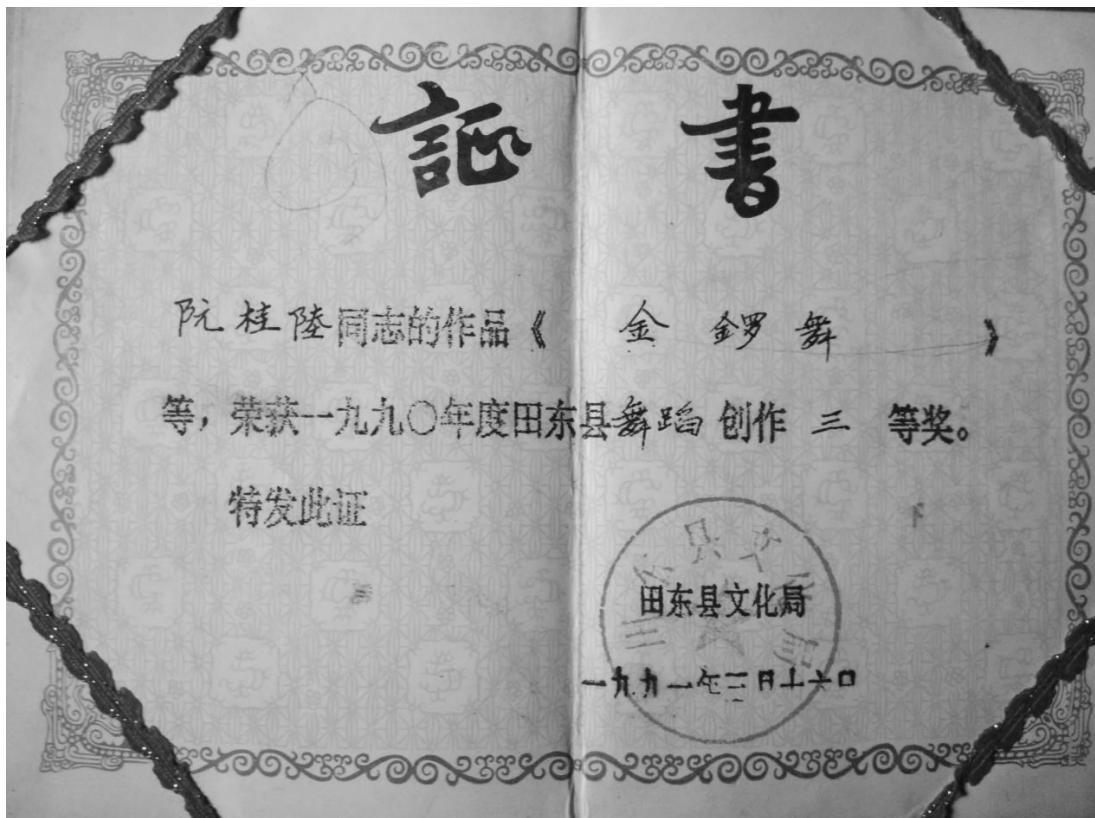 証書
阮桂陸同志的作品《金锣舞》
等，荣获一九九〇年度田东县舞蹈创作三等奖。
特发此证
田东县文化局
田东县文化局
一九九一年三月十六日